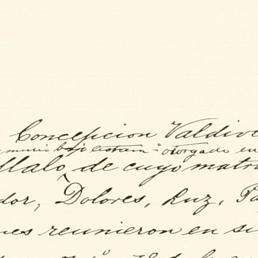 Concepcion Valdivi
murió bajo testam otorgado en
llalo, de cuyo matri
dor, Dolores, Luz, Fa
ues reunieron en su